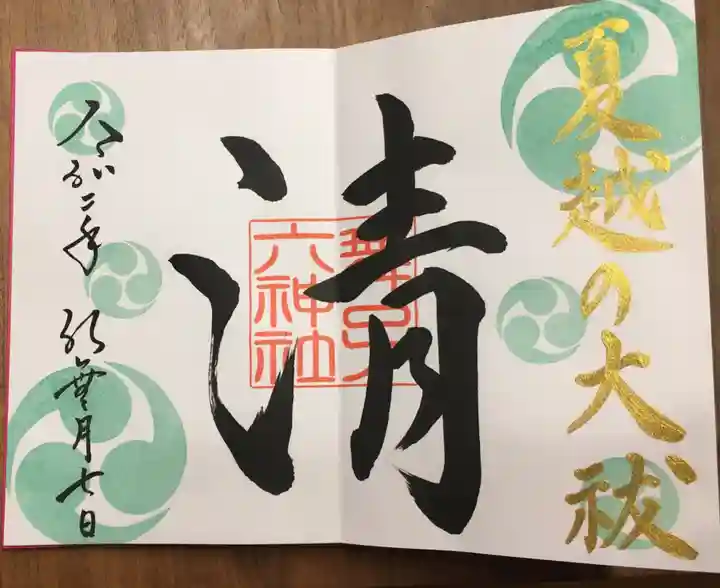 夏越の大祓
清
舞子
六神社
令和二年 水無月七日